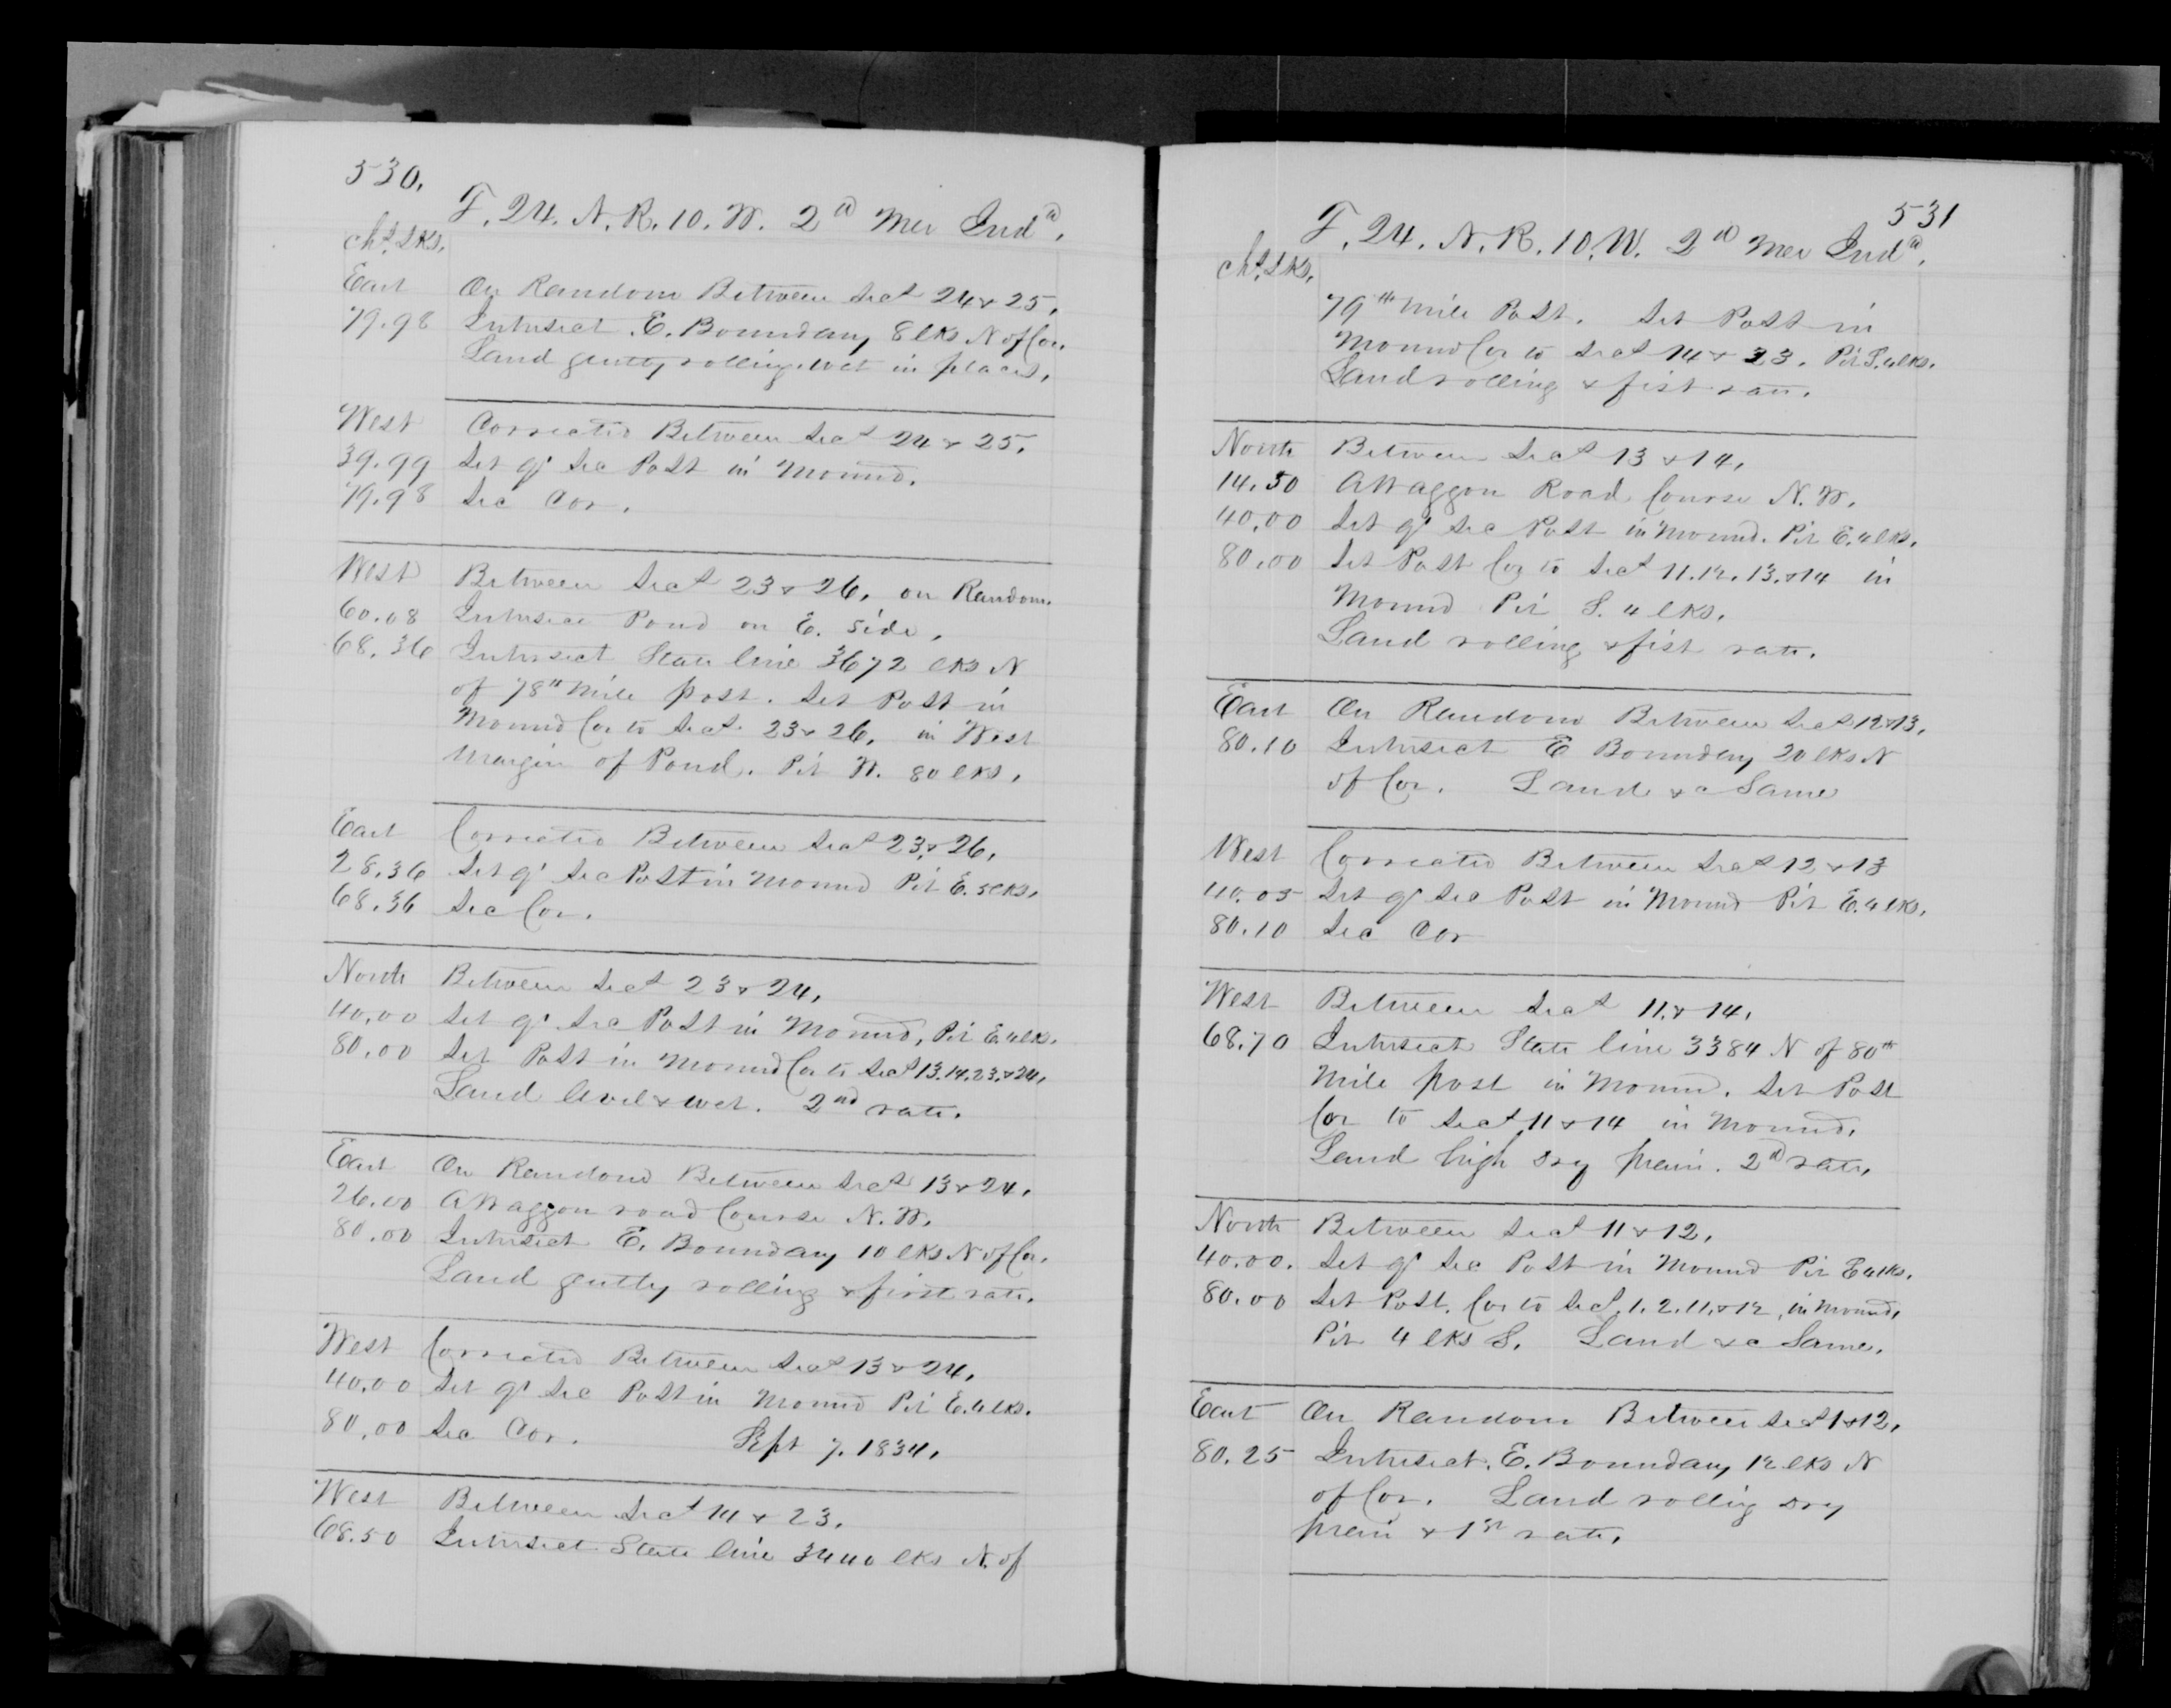 530.
T. 24. N. R. 10. W. 2d Mer Inda.
chs. Lks.
East On Random Between Secs 24 & 25.
79.98 Intersect E. Boundary 8 lks N of Cor.
Land gently rolling. wet in places.
West Corrected Between Secs 24 & 25.
39.99 Set qr Sec Post in Mound.
79.98 Sec Cor.
West Between Secs 23 & 26, on Random.
60.08 Intersect Pond on E. side.
68.36 Intersect State line 3672 lks N
of 78th Mile post. Set Post in
Mound Cor to Secs. 23 & 26, in West
Margin of Pond. Pit W. 80 lks.
East Corrected Between Secs 23 & 26.
28.36 Set qr Sec Post in Mound Pit E. 5 lks.
68.36 Sec Cor.
North Between Secs 23 & 24.
40.00 Set qr Sec Post in Mound, Pit E. 4 lks.
80.00 Set Post in Mound Cor to Secs 13. 14. 23. & 24.
Land level & wet. 2nd rate.
East On Random Between Secs 13 & 24.
26.00 A Waggon road Course N. W.
80.00 Intersect E. Boundary 10 lks N of Cor.
Land gently rolling & first rate.
West Corrected Between Secs 13 & 24.
40.00 Set qr Sec Post in Mound Pit E. 4 lks.
80.00 Sec Cor. Sept 7. 1834.
West Between Secs 14 & 23.
68.50 Intersect State line 3440 lks N. of
531
T. 24. N. R. 10. W. 2d Mer Inda.
chs. Lks.
79th Mile Post. Set Post in
Mound Cor to Secs 14 & 23. Pit S. 4 lks.
Land rolling & fist rate.
North Between Secs 13 & 14.
14.50 A Waggon Road Course N. W.
40.00 Set qr Sec Post in Mound. Pit E. 4 lks.
80.00 Set Post Cor to Secs 11. 12. 13. & 14 in
Mound Pit S. 4 lks.
Land rolling & fist rate.
East On Random Between Secs 12 & 13.
80.10 Intersect E Boundary 20 lks N
of Cor. Land &c Same
West Corrected Between Secs 12 & 13
40.05 Set qr Sec Post in Mound Pit E. 4 lks.
80.10 Sec Cor
West Between Secs 11 & 14.
68.70 Intersect State line 3384 N of 80th
Mile post in Mound. Set Post
Cor to Secs 11 & 14 in Mound.
Land high dry prairi. 2d rate.
North Between Secs 11 & 12.
40.00. Set qr Sec Post in Mound Pit E 4 lks.
80.00 Set Post. Cor to Secs. 1. 2. 11. & 12, in Mound,
Pit 4 lks S. Land &c Same.
East On Random Between Secs 1 & 12.
80.25 Intersect. E. Boundary 12 lks N
of Cor. Land rollig dry
prairi & 1st rate.